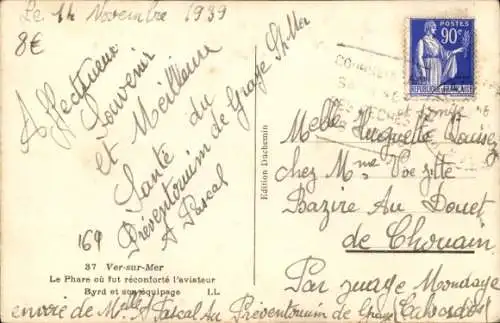 Le 14 Novembre 1939
8€
Affectueux
Souvenir
et Meilleure
Santé du
Préventorium de Graye St Mer
A Pascal
169
37 Ver-sur-Mer
Le Phare où fut réconforté l'aviateur
Byrd et son équipage LL
envoie de Melle A Pascal Au Préventorium de Graye Calvados
Edition Duchemin
POSTES
90c
REPUBLIQUE FRANÇAISE
Melle Huguette
chez Mme Vve
Bazire Au Douet
de Chouain
Par juaye Mondaye